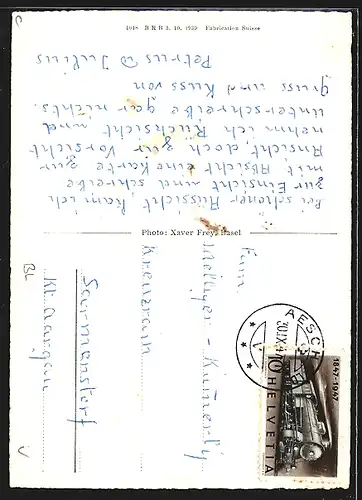 1018 BRB 3. 10. 1939 Fabrication Suisse
Bei schöner Aussicht, kam ich
zur Einsicht und schreibe
mit Absicht eine Karte zur
Ansicht, doch zur Vorsicht
nehm ich Rücksicht und
unterschreibe gar nichts.
Gruss und Kuss von
Petrus Julius
Photo: Xaver Frey, Basel
Fam
Melliger - Kumerly
Kreuzrain
Sarmenstorf
Kt. Aargau
BL
AESCH
30.IX.47
1847-1947
10 HELVETIA